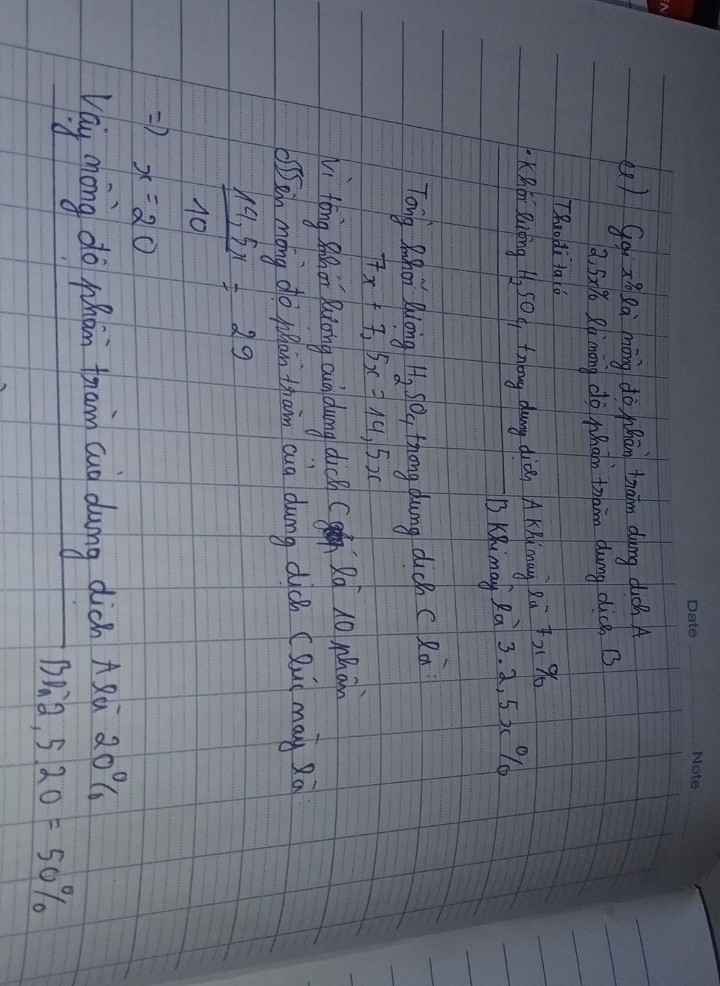 Date
Note
a) Gọi x% là nồng độ phần trăm dung dịch A
2,5x% là nồng độ phần trăm dung dịch B
Theo đề ta có
• Khối lượng H2SO4 trong dung dịch A khi này là 7x%
B khi này là 3.2,5x%
Tổng khối lượng H2SO4 trong dung dịch C là:
7x + 7,5x = 14,5x
Vì tổng khối lượng của dung dịch C là 10 phần
Nên nồng độ phần trăm của dung dịch C lúc này là:
14,5x / 10 = 29
=> x = 20
Vậy nồng độ phần trăm của dung dịch A là 20%
B là 2,5.20 = 50%